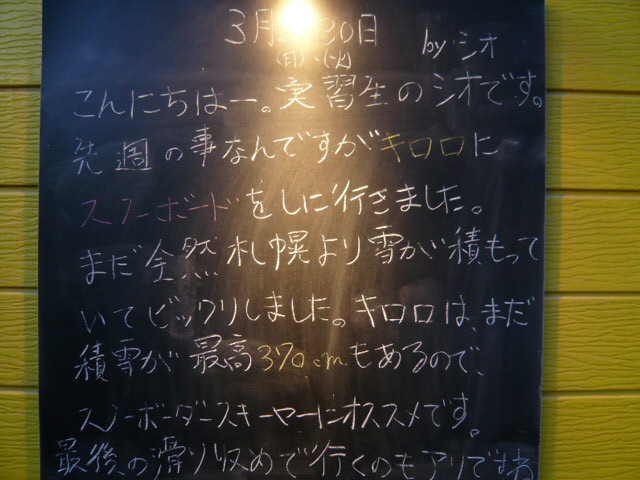 3月 30日 by シオ
(月)・(火)
こんにちはー。実習生のシオです。
先週の事なんですがキロロに
スノーボードをしに行きました。
まだ全然札幌より雪が積もって
いてビックリしました。キロロは、まだ
積雪が最高370cmもあるので、
スノーボーダースキーヤーにオススメです。
最後の滑り収めで行くのもアリですね